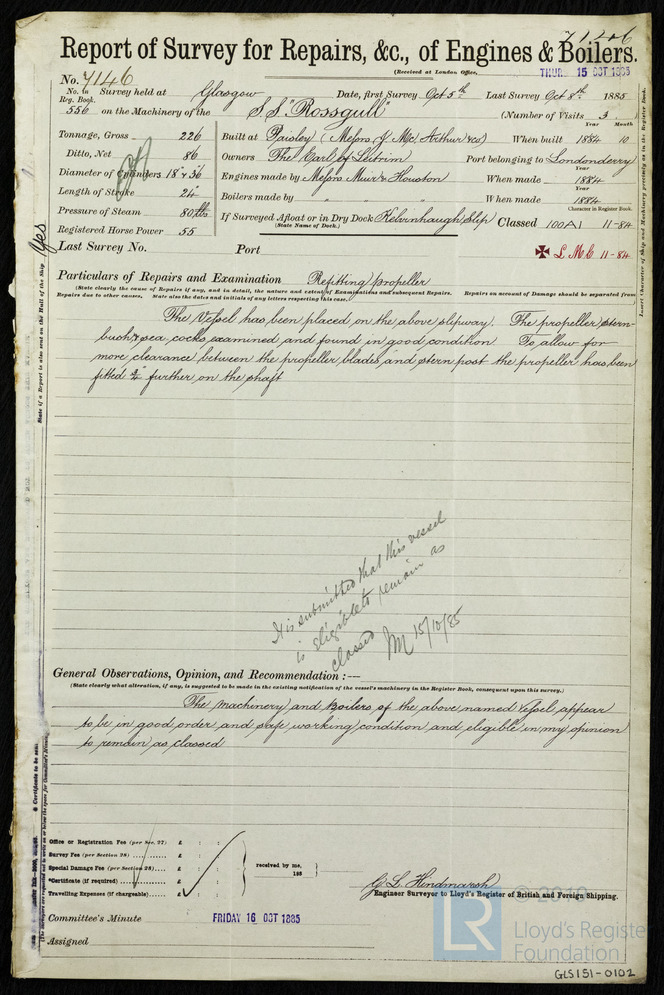 71206
Report of Survey for Repairs, &c., of Engines & Boilers.
(Received at London Office, THUR. 15 OCT 1885
No. 7146
No. in Reg. Book. 556
Survey held at Glasgow Date, first Survey Oct 5th Last Survey Oct 8th 1885
on the Machinery of the S.S. "Rossgull" (Number of Visits 3)
Year Month
Tonnage, Gross 226 Built at Paisley (Messrs J. Mc. Arthur & Co) When built 1884 10
Ditto, Net 86 Owners The Earl of Leitrim Port belonging to Londonderry
Diameter of Cylinders 18" & 36 Engines made by Messrs Muir & Houston When made 1884
Length of Stroke 24" Boilers made by " " " When made 1884
Pressure of Steam 80 lbs If Surveyed Afloat or in Dry Dock Kelvinhaugh Slip Classed 100A1 11-84
(State Name of Dock.)
Character in Register Book.
Registered Horse Power 55
Yes
Last Survey No. Port ✠ L.M.C 11-84
Particulars of Repairs and Examination Refitting propeller
(State clearly the cause of Repairs if any, and in detail, the nature and extent of Examinations and subsequent Repairs. Repairs on account of Damage should be separated from
Repairs due to other causes. State also the dates and initials of any letters respecting this case.)
The Vessel has been placed on the above slipway. The propeller, stern-
bush & sea cocks examined and found in good condition To allow for
more clearance between the propeller blades and stern post the propeller has been
fitted further on the shaft
It is submitted that this vessel
is eligible to remain as
classed 15/10/85
General Observations, Opinion, and Recommendation :—
(State clearly what alteration, if any, is suggested to be made in the existing notification of the vessel's machinery in the Register Book, consequent upon this survey.)
The Machinery and Boilers of the above named Vessel appear
to be in good order and safe working condition and eligible in my opinion
to remain as classed
Office or Registration Fee (per Sec. 27) £ : :
Survey Fee (per Section 28) £ : :
Special Damage Fee (per Section 28) £ : :
Certificate (if required) £ : :
Travelling Expenses (if chargeable) £ : :
received by me,
188
G. L. Hindmarsh
Engineer Surveyor to Lloyd's Register of British and Foreign Shipping.
Committee's Minute FRIDAY 16 OCT 1885
Assigned
© 2019
LR
Lloyd's Register
Foundation
GLS151-0102